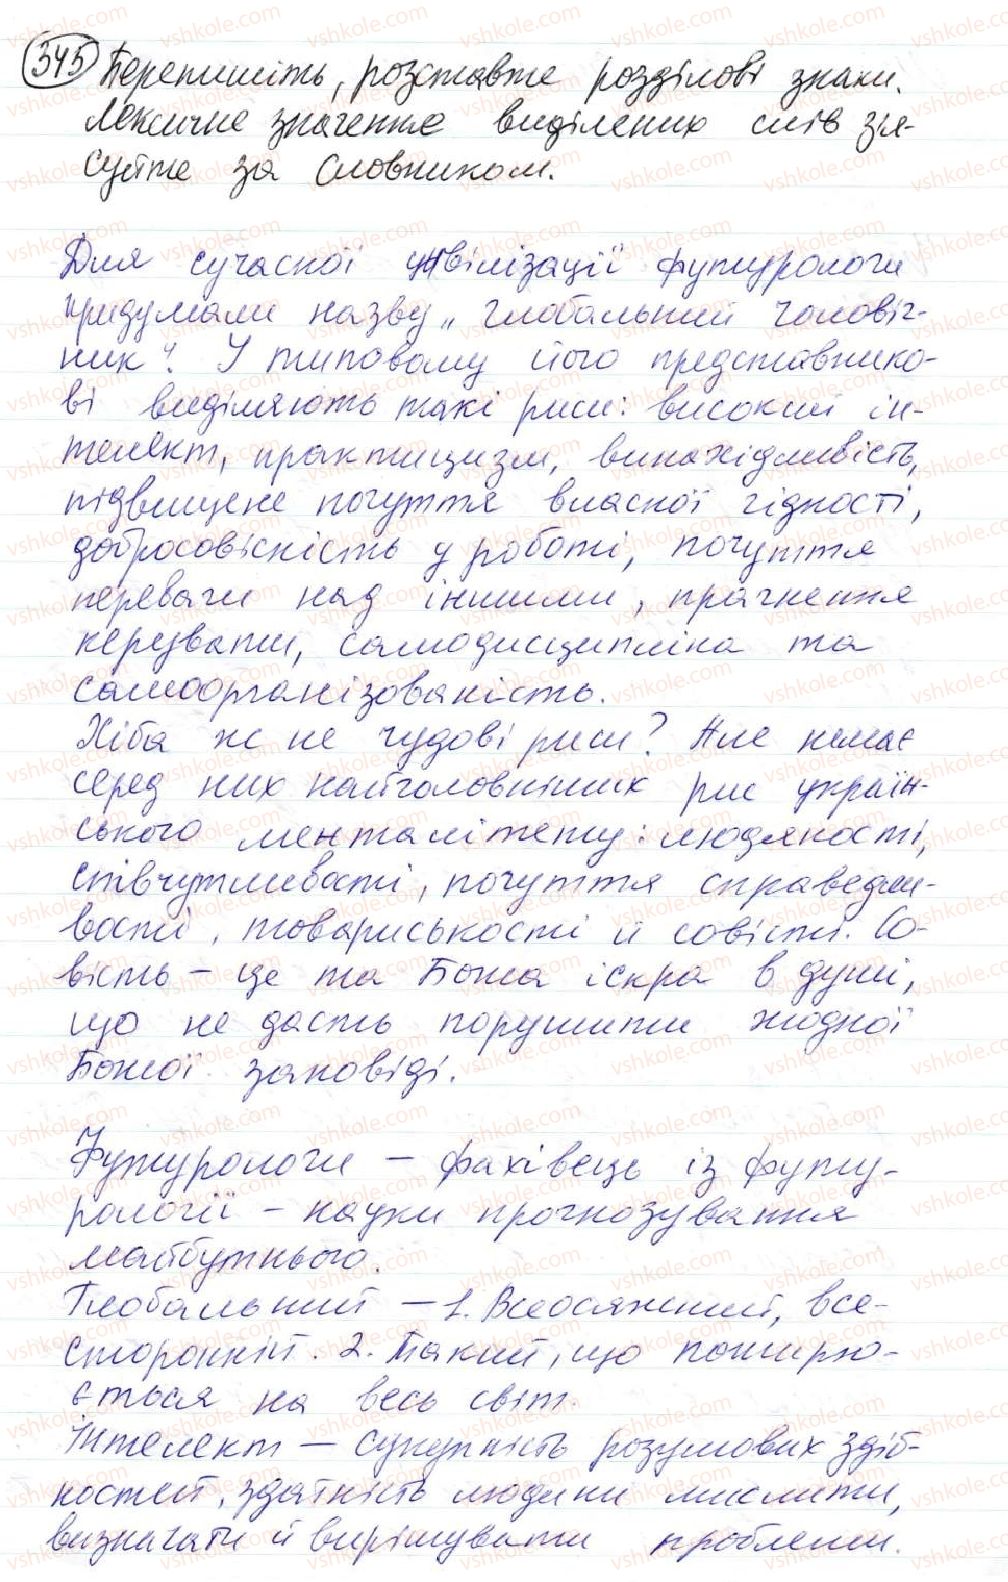 345 Перепишіть, розставте розділові знаки.
Лексичне значення виділених слів зʼя-
суйте за словником.
Для сучасної цивілізації футурологи
придумали назву „глобальний чоловіч-
ник". У типовому його представнико-
ві виділяють такі риси: високий ін-
телект, практицизм, винахідливість,
підвищене почуття власної гідності,
добросовісність у роботі, почуття
переваги над іншими, прагнення
керувати, самодисципліна та
самоорганізованість.
Хіба ж не чудові риси? Але немає
серед них найголовніших рис україн-
ського менталітету: людяності,
співчутливості, почуття справедли-
вості, товариськості й совісті. Со-
вість – це та Божа іскра в душі,
що не дасть порушити жодної
Божої заповіді.
Футурологи – фахівець із футу-
рології – науки прогнозування
майбутнього.
Глобальний – 1. Всеосяжний, все-
сторонній. 2. Такий, що поширю-
ється на весь світ.
Інтелект – сукупність розумових здіб-
ностей, здатність людини мислити,
визначати й вирішувати проблеми.